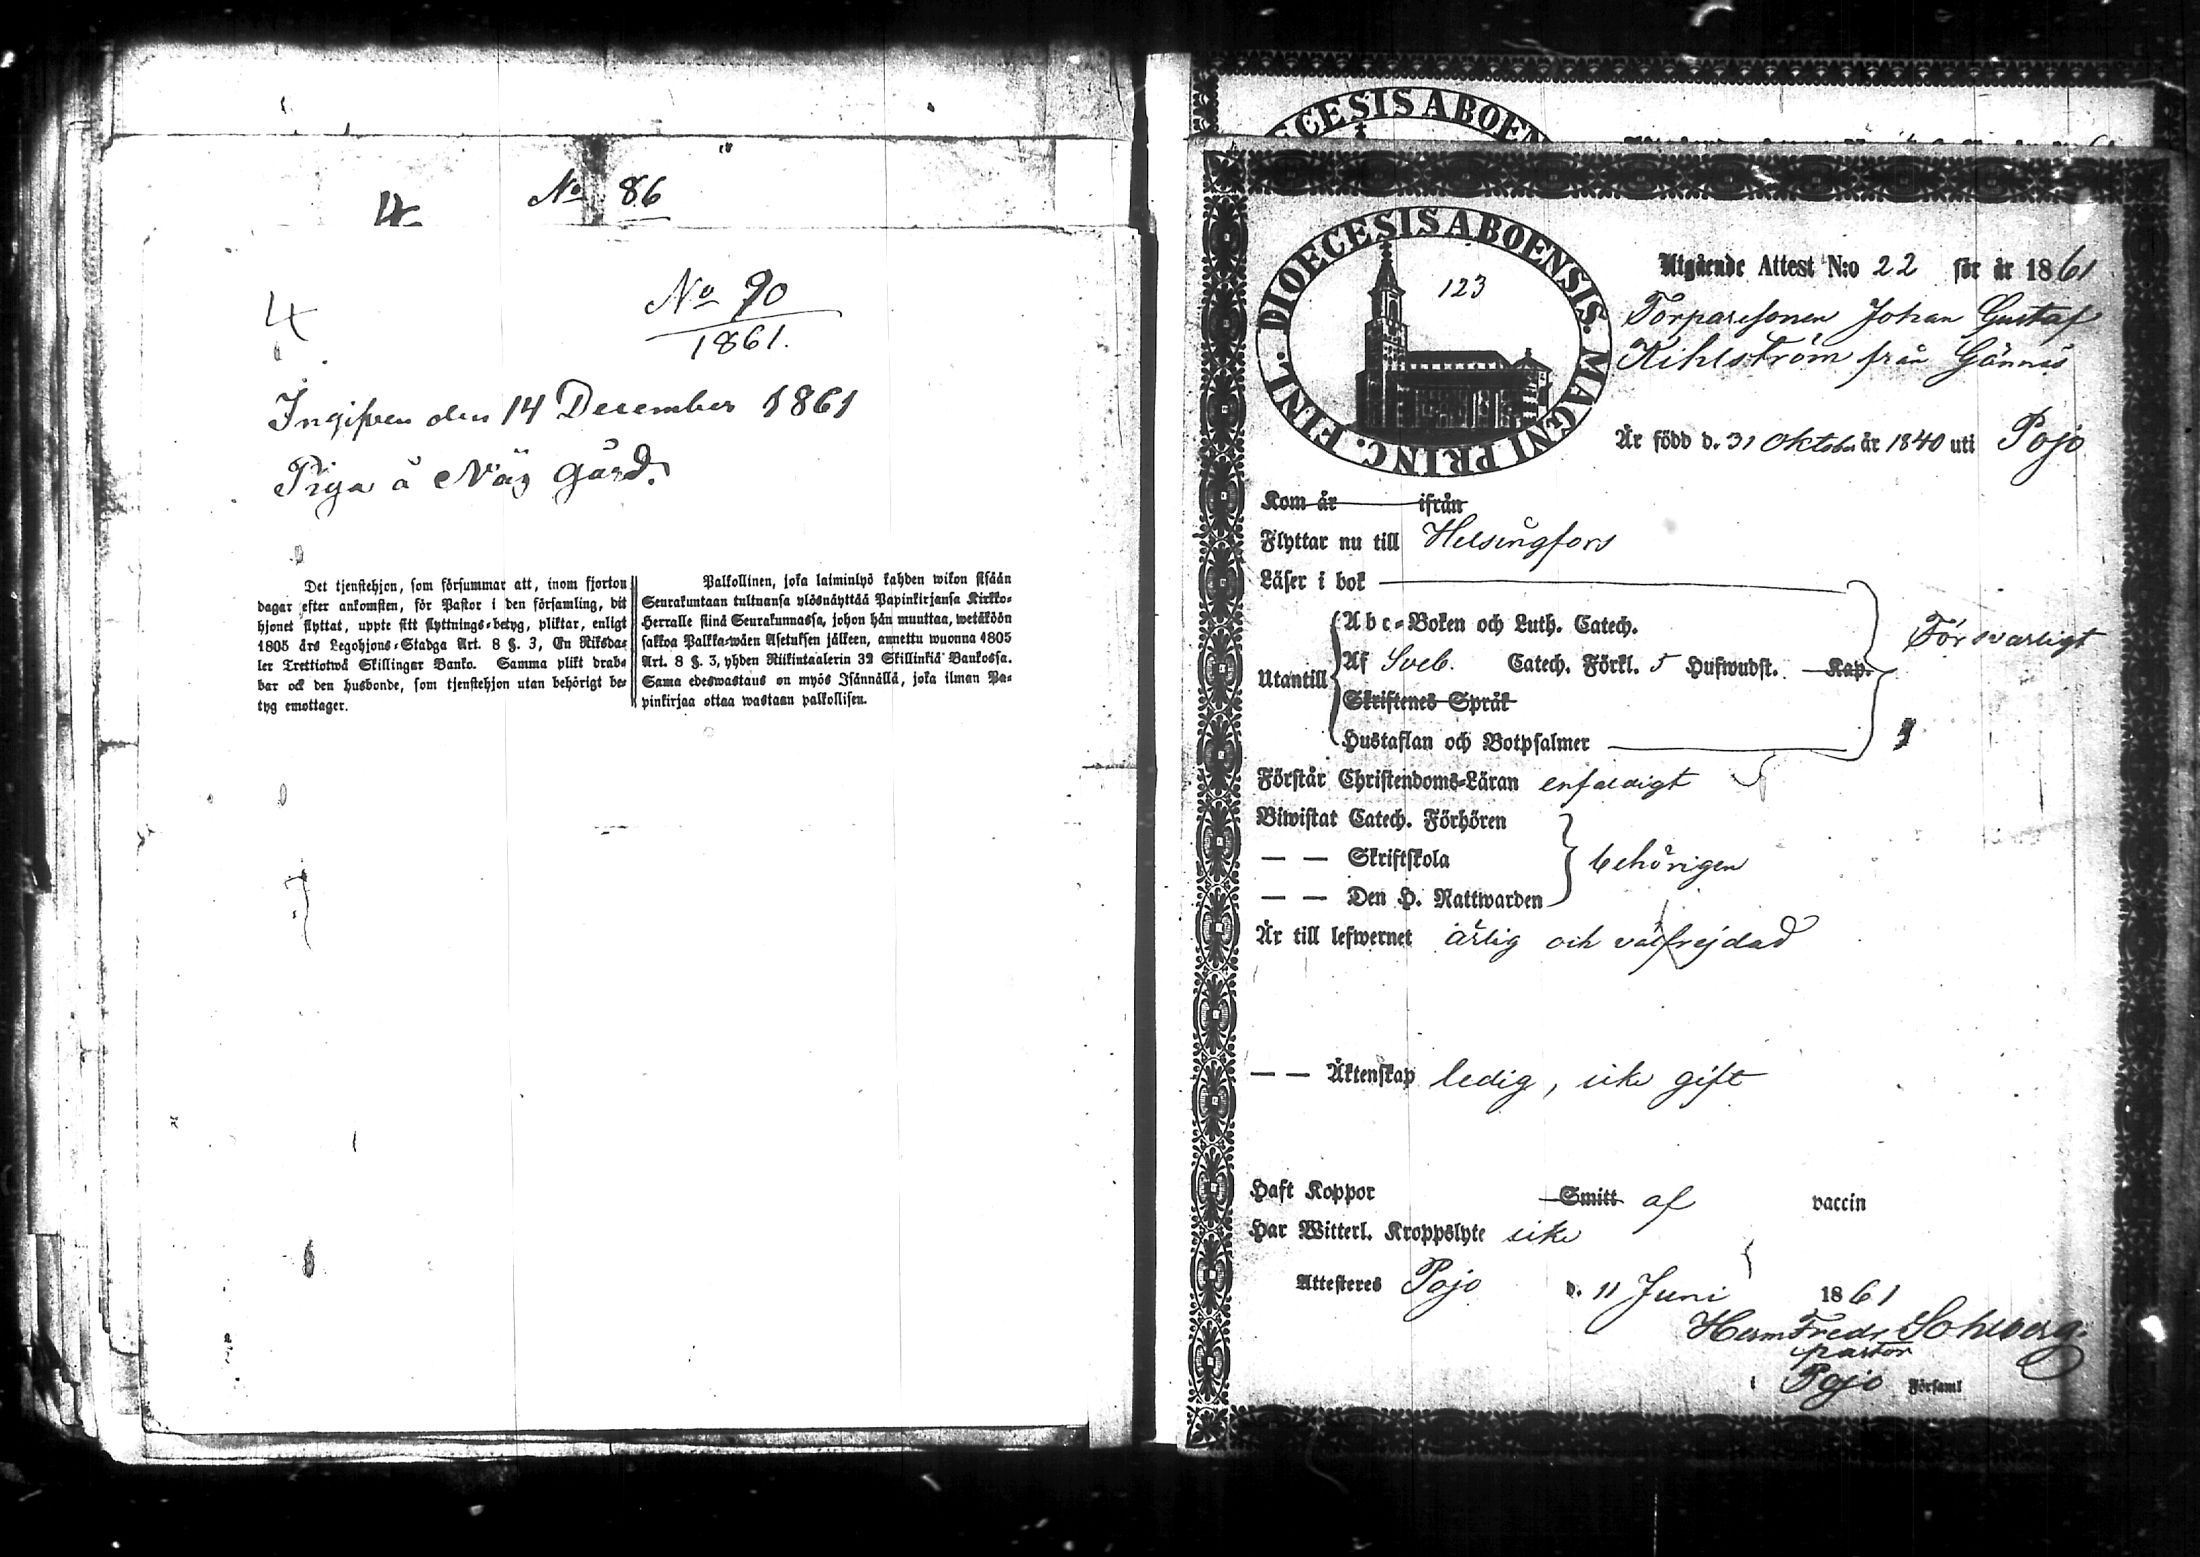 No 86
4
No 90
1861.
4
Ingifven den 14 December 1861
Piga å Näs gård.
Det tjenstehjon, som försummar att, inom fjorton
dagar efter ankomsten, för Pastor i den församling, dit
hjonet flyttat, uppte sitt flyttnings-betyg, pliktar, enligt
1805 års Legohjons-Stadga Art. 8 §. 3, En Riksda-
ler Trettiotwå Skillingar Banko. Samma plikt drab-
bar ock den husbonde, som tjenstehjon utan behörigt be-
tyg emottager.
Palkollinen, joka laiminlyö kahden wikon sisään
Seurakuntaan tultuansa ylösnäyttää Papinkirjansa Kirkko-
Herralle siinä Seurakunnassa, johon hän muuttaa, wetäköön
sakkoa Palkka-wäen Asetuksen jälkeen, annettu wuonna 1805
Art. 8 §. 3, yhden Riikintaalerin 32 Skillinkiä Bankossa.
Sama edeswastaus on myös Isännällä, joka ilman Pa-
pinkirjaa ottaa wastaan palkollisen.
DIOECESIS ABOENSIS. MAGNI PRINC. FINL.
123
Utgående Attest N:o 22 för år 1861
Torparesonen Johan Gustaf
Kihlström från Gännäs
Är född d. 31 Oktober år 1840 uti Pojo
Kom år ifrån
Flyttar nu till Helsingfors
Läser i bok
Utantill
Abc-Boken och Luth. Catech.
Af Sveb. Catech. Förkl. 5 Hufwudst. Kap.
Skriftenes Språk
Hustaflan och Botpsalmer
Försvarligt
Förstår Christendoms-Läran enfaldigt
Biwistat Catech. Förhören
— — Skriftskola
— — Den H. Nattwarden
behörigen
Är till lefwernet ärlig och välfrejdad
— — Äktenskap ledig, icke gift
Haft Koppor Smitt af vaccin
Har Witterl. Kroppslyte icke
Attesteres Pojo d. 11 Juni 1861
Herm Fredr Sohlberg.
pastor
i Pojo Församl